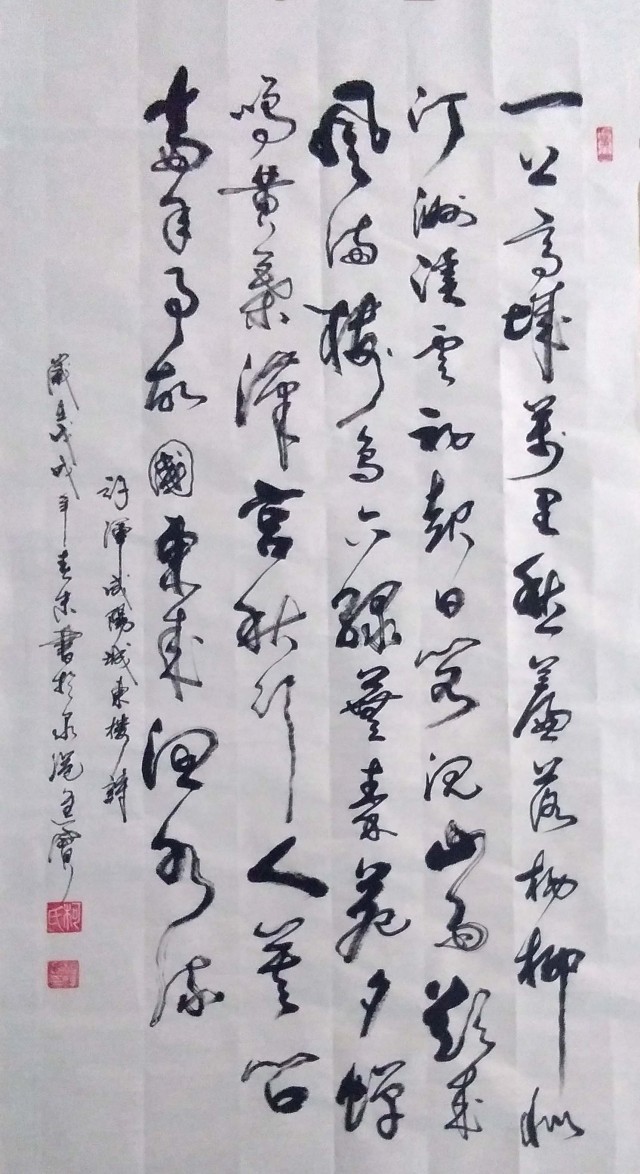 一上高城萬里愁蒹葭楊柳似
汀洲溪云初起日閣沉山雨欲來
風滿樓鳥下綠蕪秦苑夕蟬
鳴黃葉漢宮秋行人莫問
當年事故國東來渭水流
許渾咸陽城東樓詩
歲在戊戌年春末書於泉港
柯氏